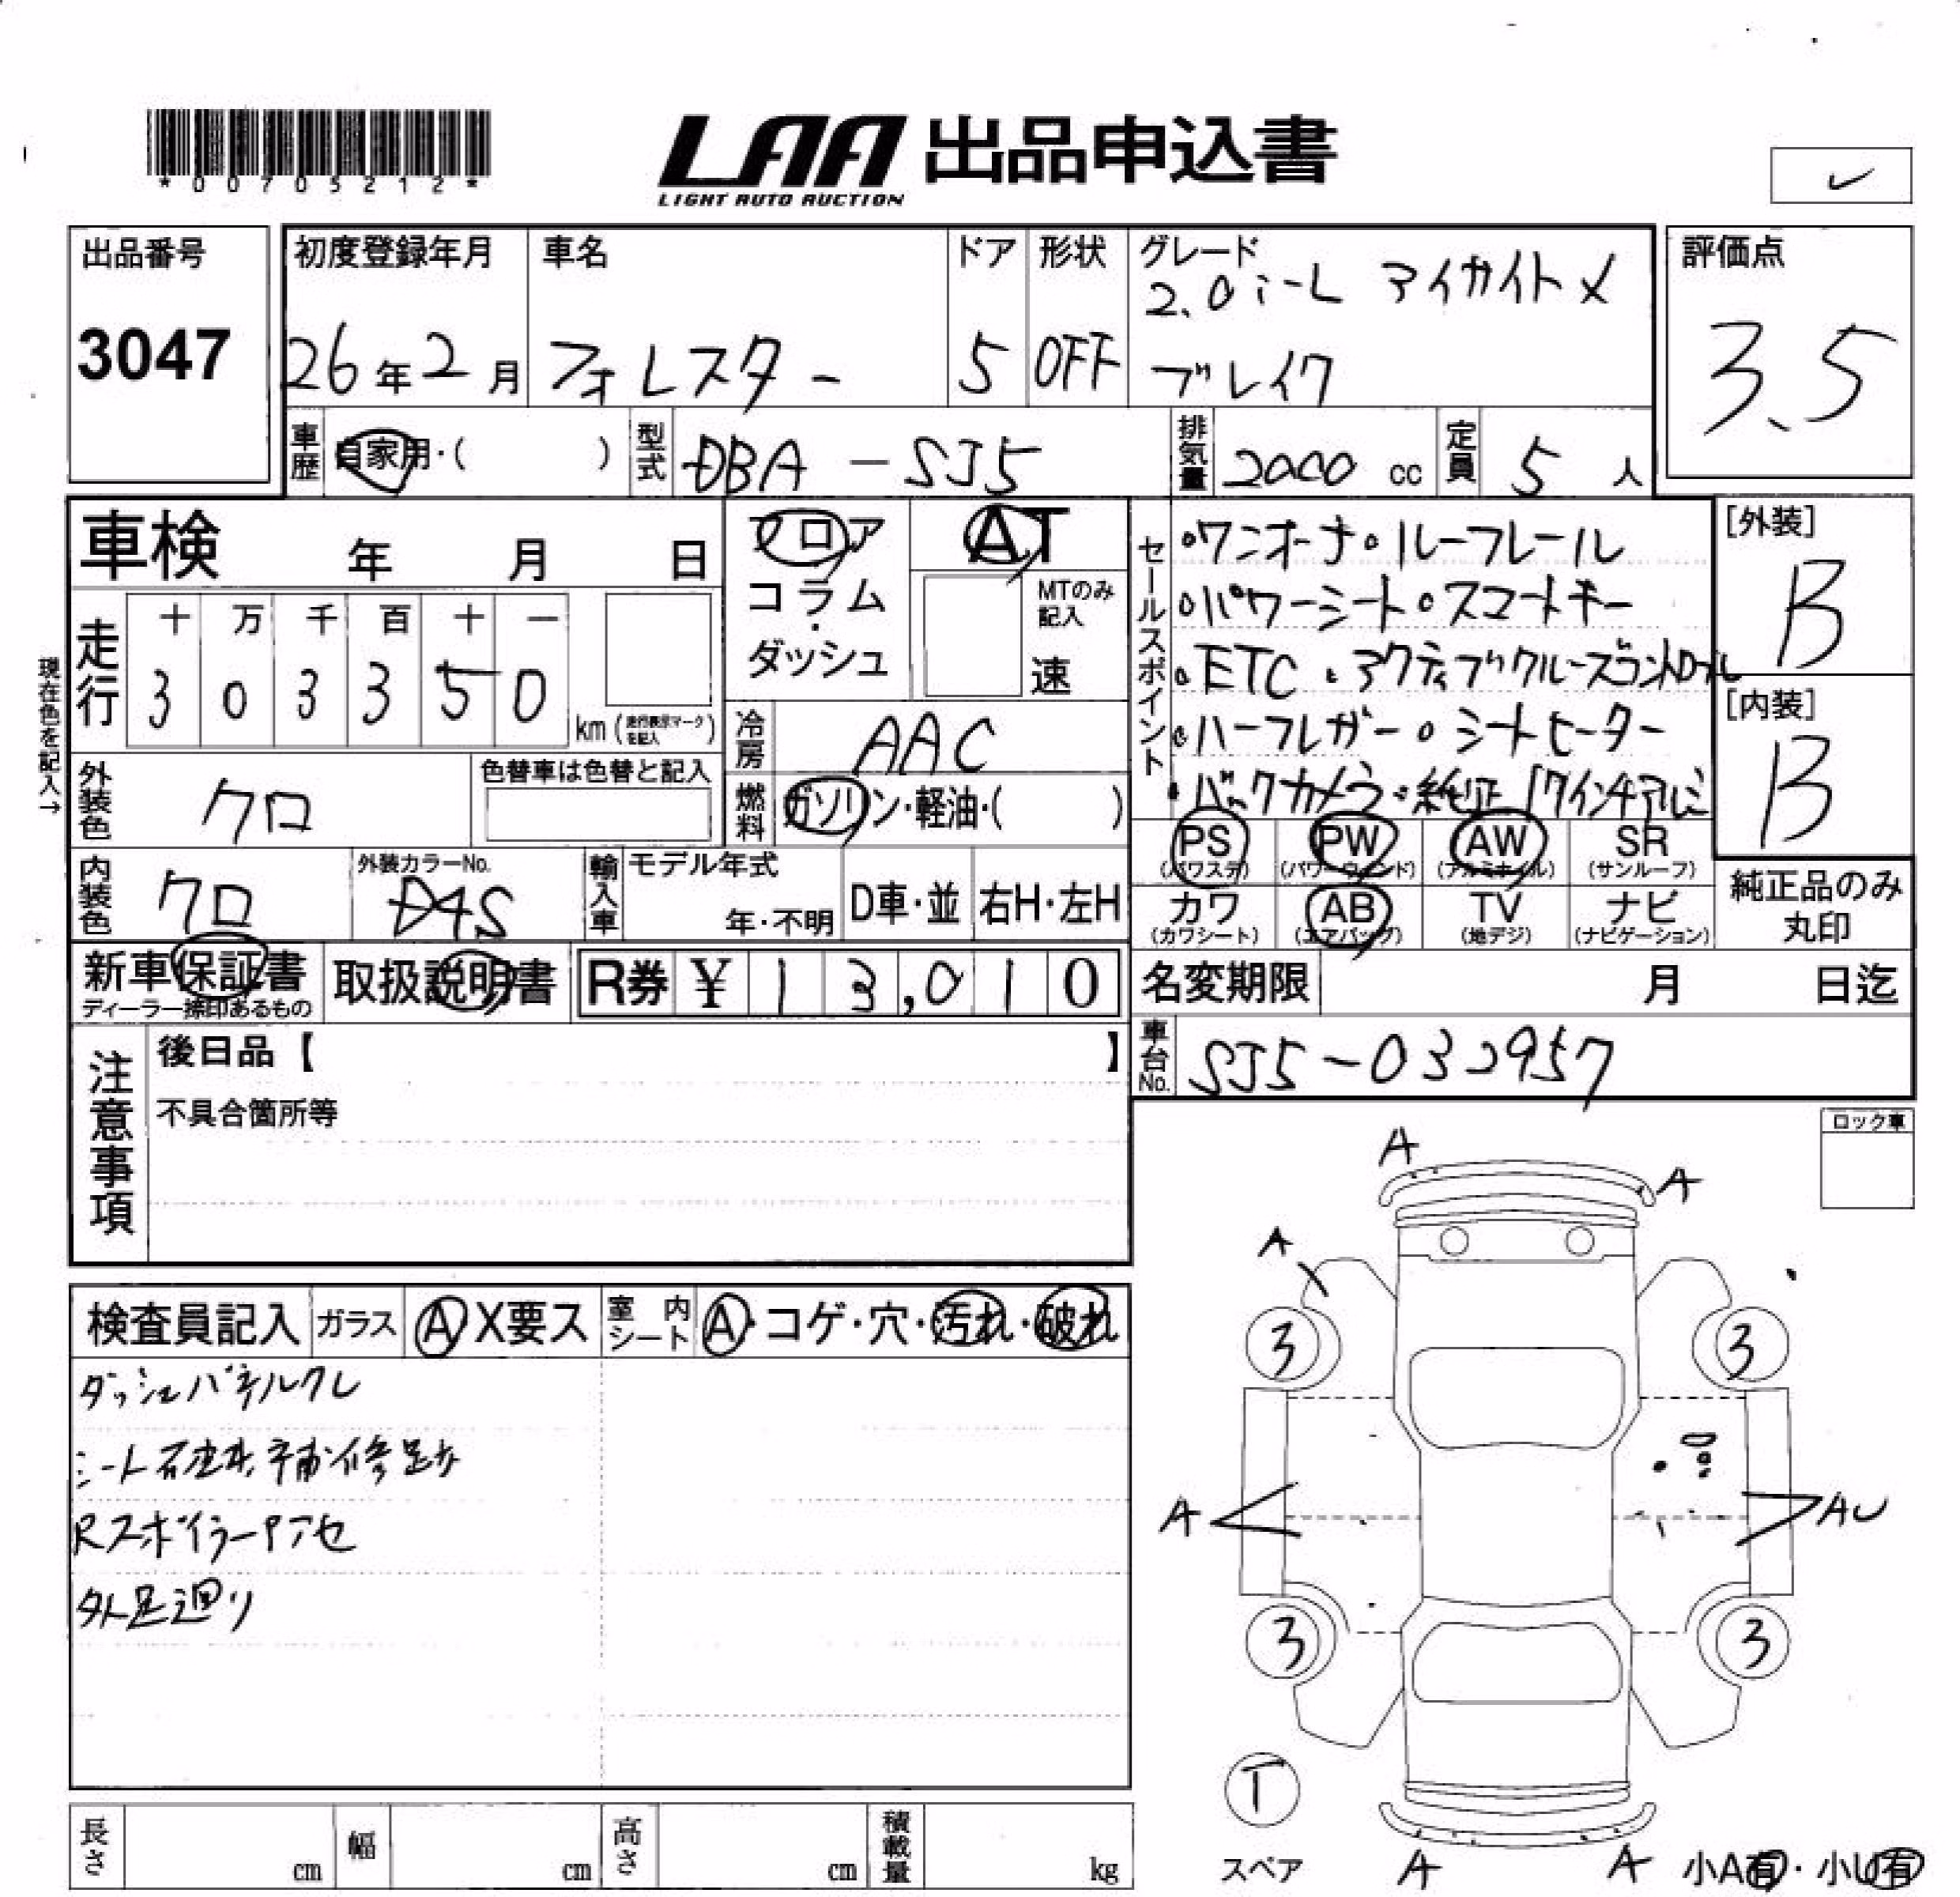 *00705212*
LAA 出品申込書
LIGHT AUTO AUCTION
出品番号
3047
初度登録年月
26年2月
車名
フォレスター
ドア
5
形状
OFF
グレード
2.0i-L アイサイトメ
ブレイク
評価点
3.5
車歴
自家用・( )
型式
DBA-SJ5
排気量
2000 cc
定員
5 人
車検 年 月 日
フロア
コラム
・
ダッシュ
AT
MTのみ
記入
速
セールスポイント
•ワンオーナ•ルーフレール
•パワーシート•スマートキー
•ETC •アクティブクルーズコントロール
•ハーフレザー•シートヒーター
•バックカメラ•純正17インチアルミ
[外装]
B
[内装]
B
現在色を記入→
走行
十 万 千 百 十 一
3 0 3 3 5 0
km (走行表示マークを記入)
冷房
AAC
外装色
クロ
色替車は色替と記入
燃料
ガソリン・軽油・( )
PS
(パワステ)
PW
(パワーウィンド)
AW
(アルミホイル)
SR
(サンルーフ)
カワ
(カワシート)
AB
(エアバッグ)
TV
(地デジ)
ナビ
(ナビゲーション)
純正品のみ
丸印
内装色
クロ
外装カラーNo.
D4S
輸入車
モデル年式
年・不明
D車・並
右H・左H
新車保証書
ディーラー捺印あるもの
取扱説明書
R券 ¥ 1 3,0 1 0
名変期限 月 日迄
車台No.
SJ5-032957
注意事項
後日品【 】
不具合箇所等
ロック車
検査員記入
ガラス
A X要ス
室内シート
A・コゲ・穴・汚れ・破れ
ダッシュパネルスレ
シート破れ補修跡
Rスポイラー
外足廻り
A
A
A
3
3
A
AU
3
3
T
スペア
A
A
小A有・小U有
長さ cm
幅 cm
高さ cm
積載量 kg